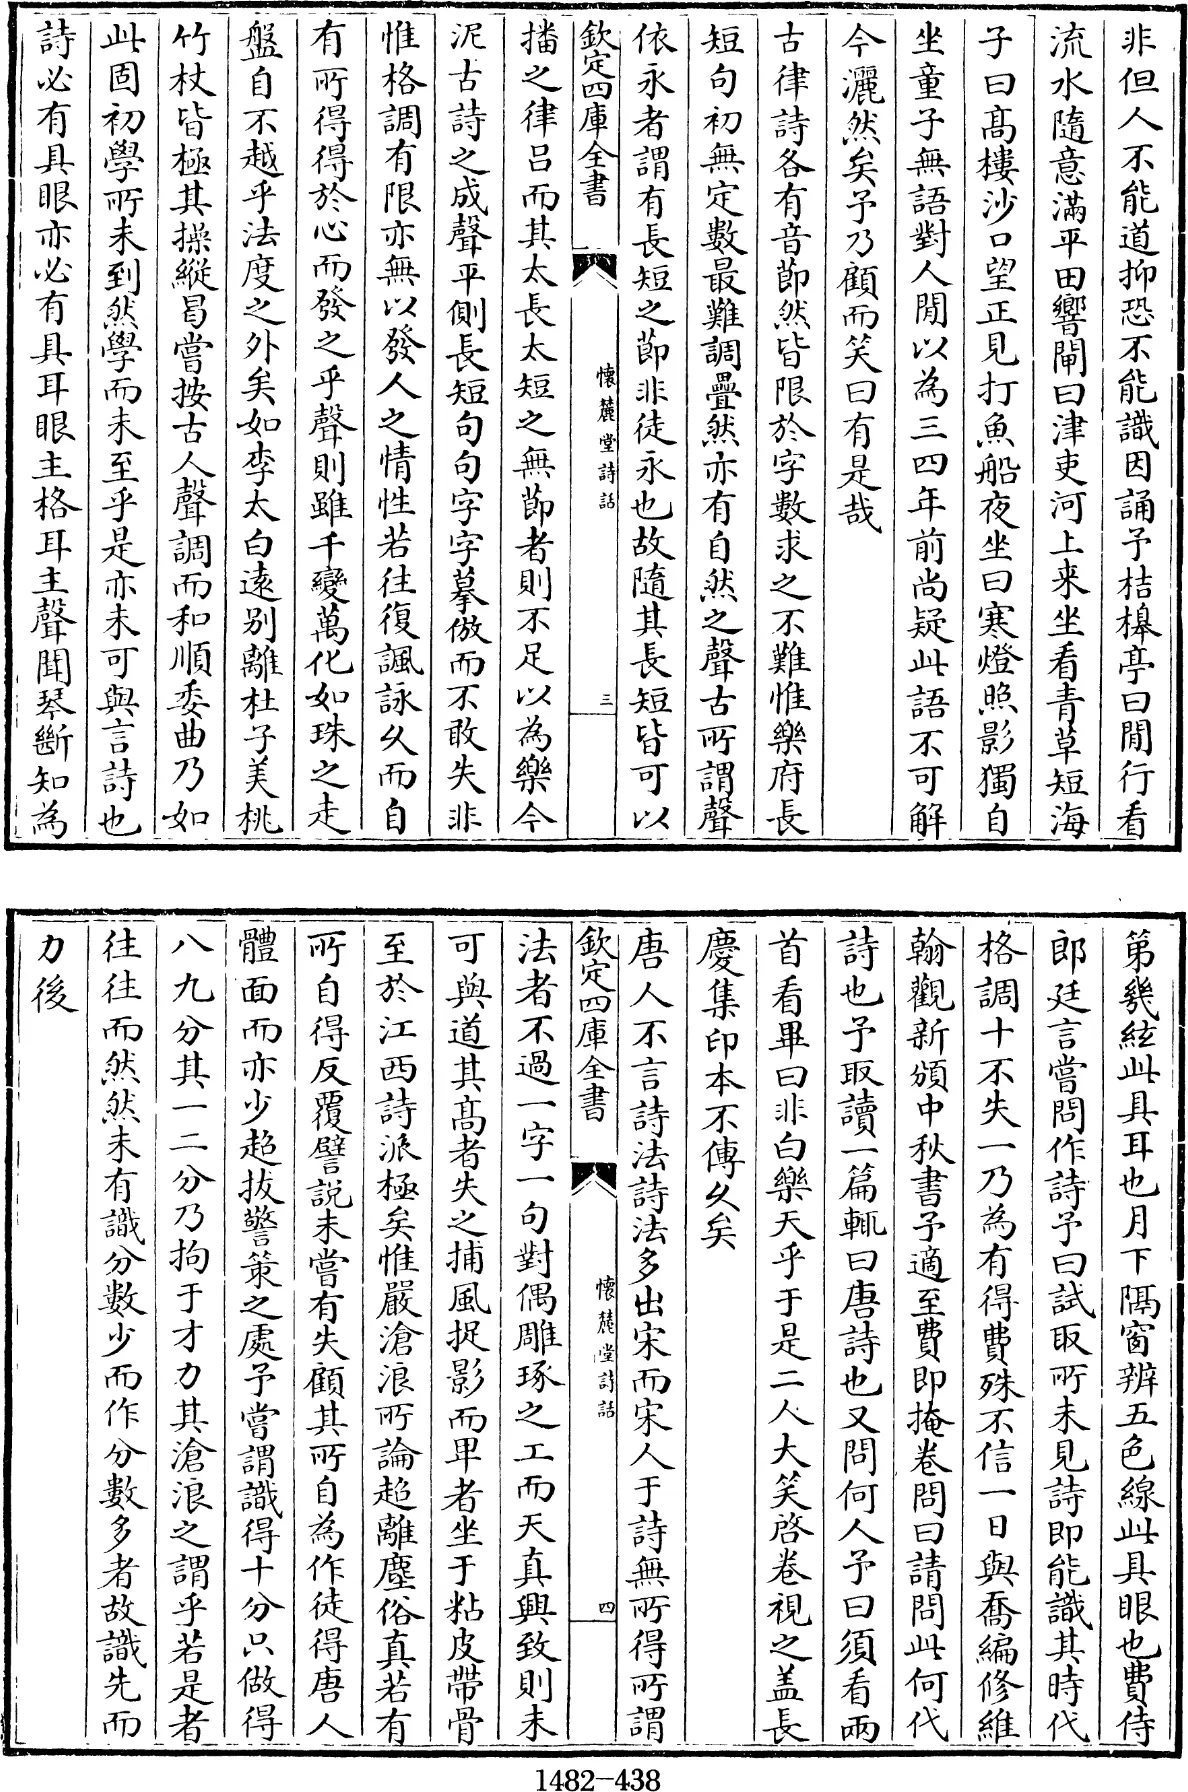 非但人不能道抑恐不能識因誦予桔槹亭曰閒行看
流水隨意滿平田響閘曰津吏河上来坐看青草短海
子曰髙樓沙口望正見打魚船夜坐曰寒燈照影獨自
坐童子無語對人閒以為三四年前尚疑此語不可解
今灑然矣予乃顧而笑曰有是哉
古律詩各有音節然皆限於字數求之不難惟樂府長
短句初無定數最難調疊然亦有自然之聲古所謂聲
依永者謂有長短之節非徒永也故隨其長短皆可以
欽定四庫全書
懷麓堂詩話
三
播之律呂而其太長太短之無節者則不足以為樂今
泥古詩之成聲平側長短句句字字摹倣而不敢失非
惟格調有限亦無以發人之情性若往復諷詠久而自
有所得得於心而發之乎聲則雖千變萬化如珠之走
盤自不越乎法度之外矣如李太白遠别離杜子美桃
竹杖皆極其操縱曷嘗按古人聲調而和順委曲乃如
此固初學所未到然學而未至乎是亦未可與言詩也
詩必有具眼亦必有具耳眼主格耳主聲聞琴斷知為
第幾絃此具耳也月下隔窗辨五色線此具眼也費侍
郎廷言嘗問作詩予曰試取所未見詩即能識其時代
格調十不失一乃為有得費殊不信一日與喬編修維
翰觀新頒中秋書予適至費即掩卷問曰請問此何代
詩也予取讀一篇輒曰唐詩也又問何人予曰須看兩
首看畢曰非白樂天乎于是二人大笑啓卷視之盖長
慶集印本不傳久矣
唐人不言詩法詩法多出宋而宋人于詩無所得所謂
欽定四庫全書
懷麓堂詩話
四
法者不過一字一句對偶雕琢之工而天真興致則未
可與道其髙者失之捕風捉影而卑者坐于粘皮帶骨
至於江西詩派極矣惟嚴滄浪所論超離塵俗真若有
所自得反覆譬説未嘗有失顧其所自為作徒得唐人
體面而亦少超拔警策之處予嘗謂識得十分只做得
八九分其一二分乃拘于才力其滄浪之謂乎若是者
往往而然然未有識分數少而作分數多者故識先而
力後
1482-438